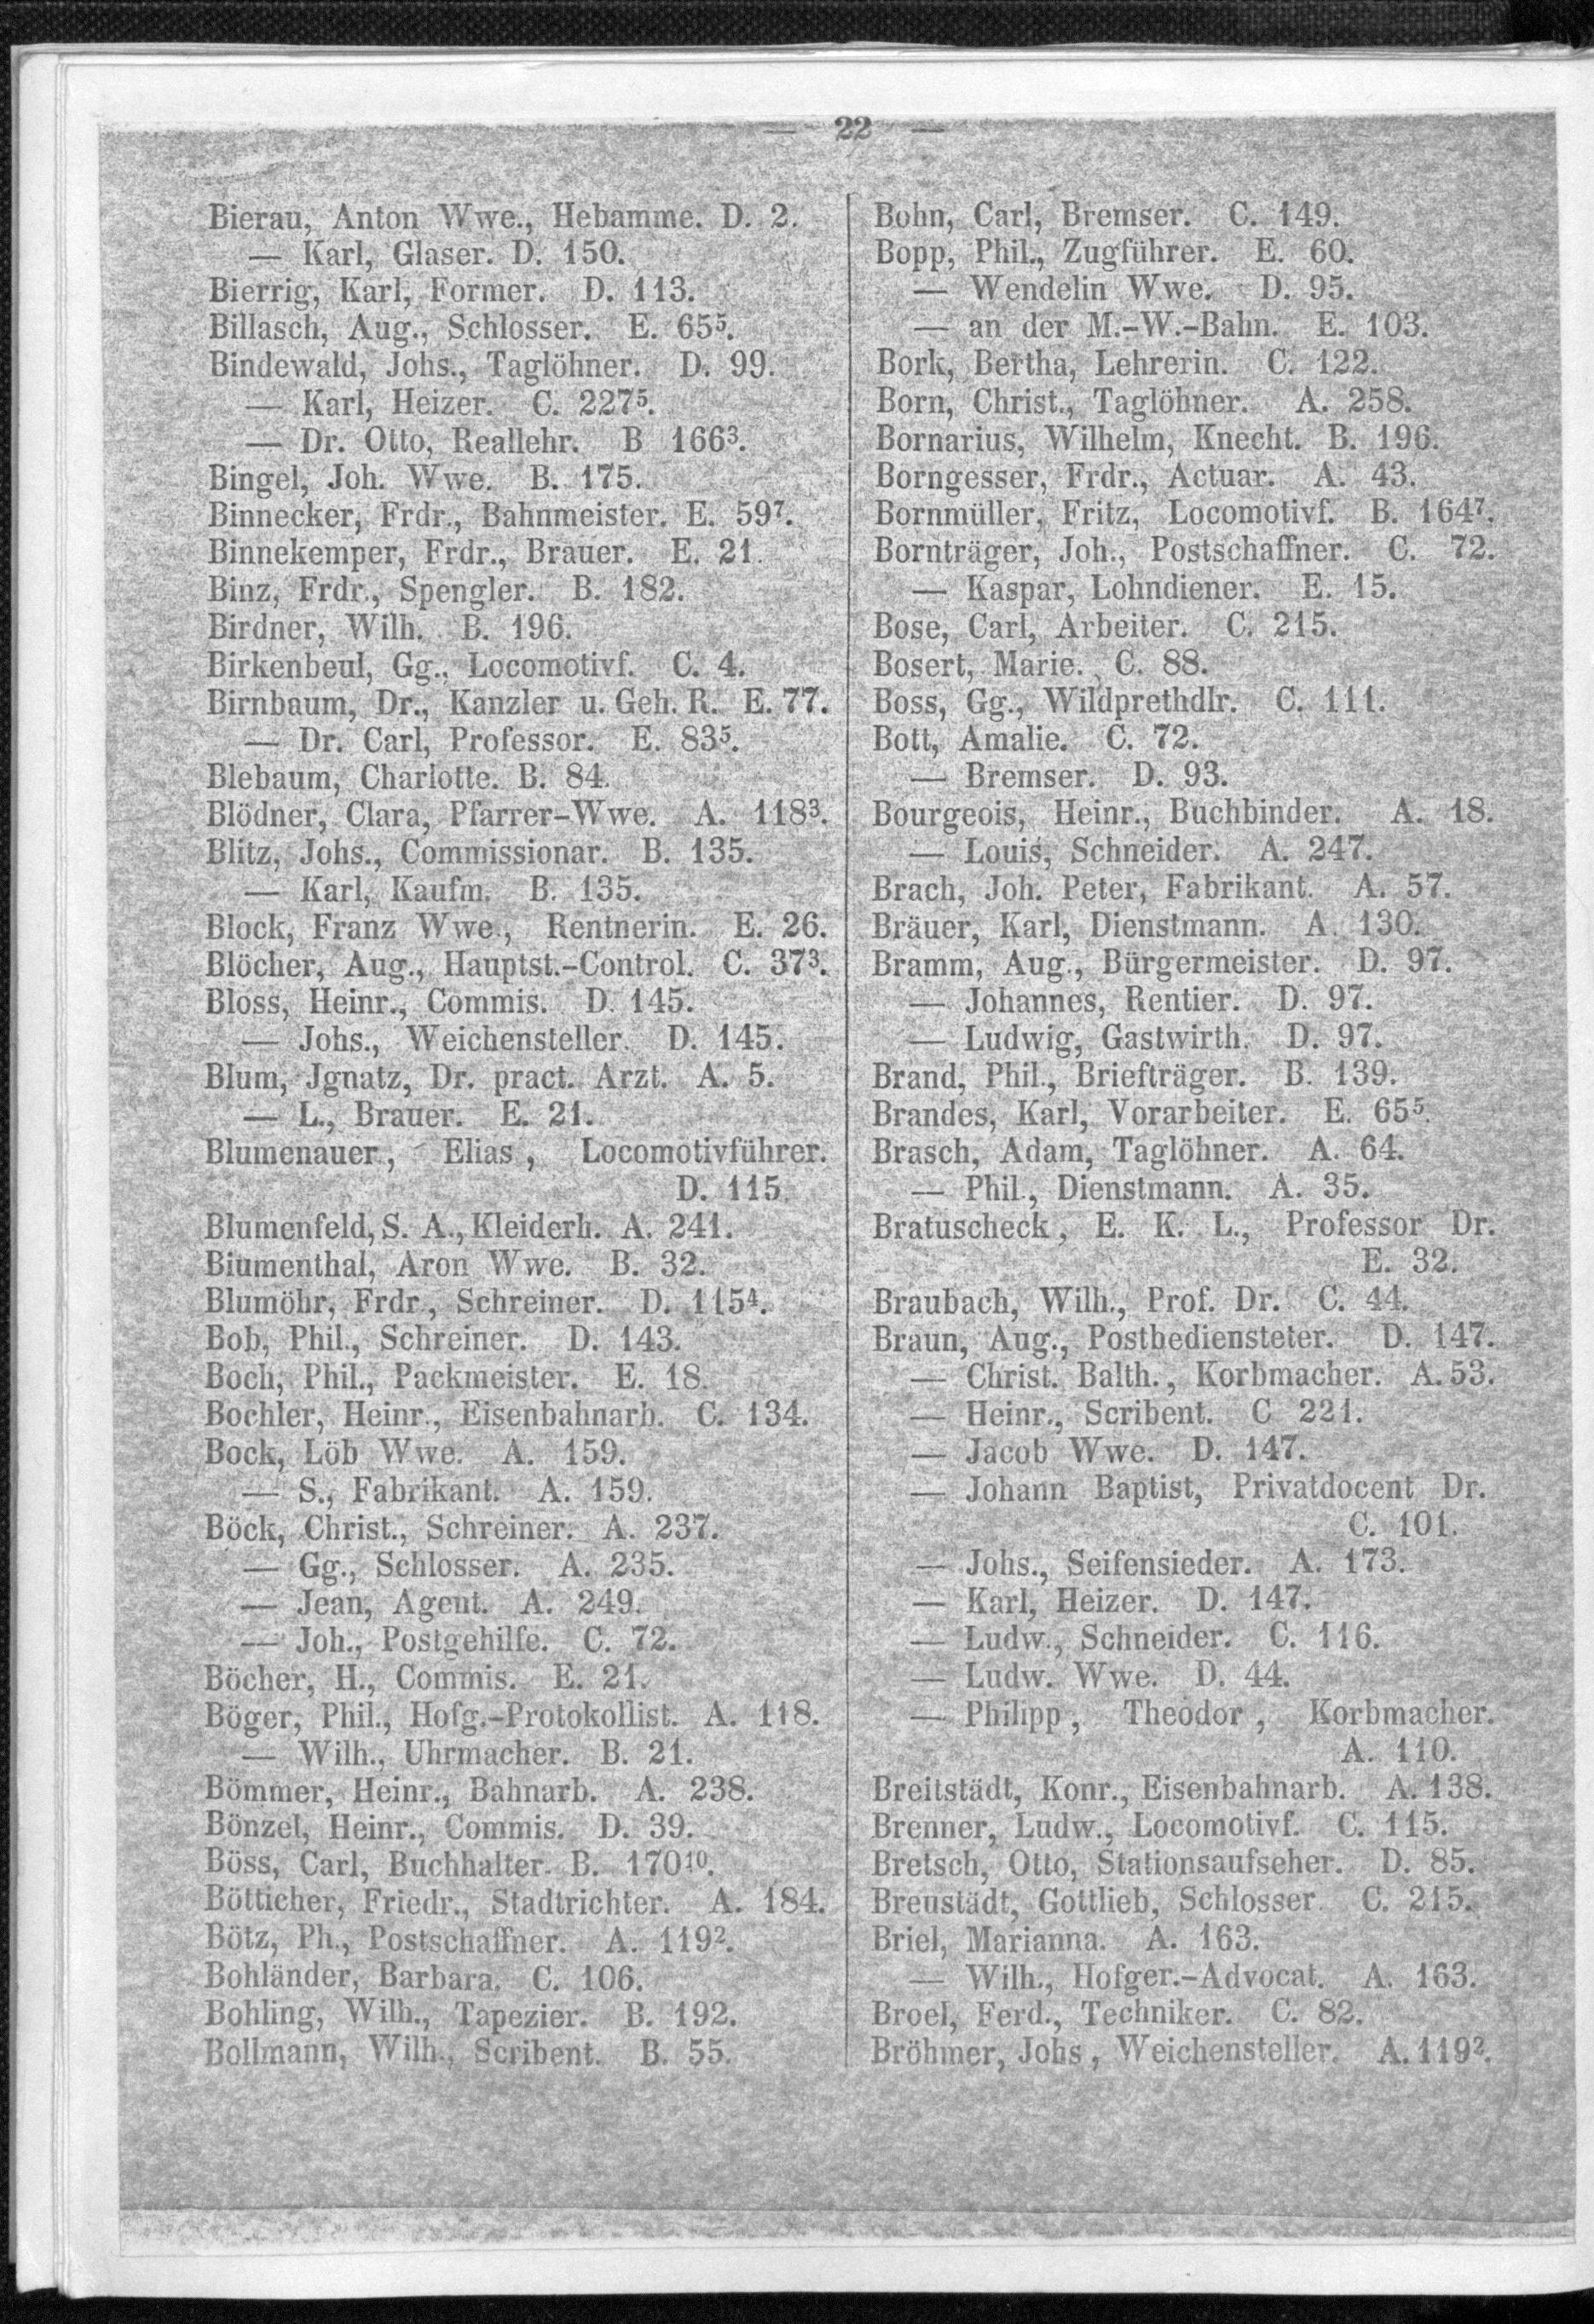 — 22 —
Bierau, Anton Wwe., Hebamme. D. 2.
— Karl, Glaser. D. 150.
Bierrig, Karl, Former. D. 113.
Billasch, Aug., Schlosser. E. 65⁵.
Bindewald, Johs., Taglöhner. D. 99.
— Karl, Heizer. C. 227⁵.
— Dr. Otto, Reallehr. B 166³.
Bingel, Joh. Wwe. B. 175.
Binnecker, Frdr., Bahnmeister. E. 59⁷.
Binnekemper, Frdr., Brauer. E. 21.
Binz, Frdr., Spengler. B. 182.
Birdner, Wilh. B. 196.
Birkenbeul, Gg., Locomotivf. C. 4.
Birnbaum, Dr., Kanzler u. Geh. R. E. 77.
— Dr. Carl, Professor. E. 83⁵.
Blebaum, Charlotte. B. 84.
Blödner, Clara, Pfarrer-Wwe. A. 118³.
Blitz, Johs., Commissionar. B. 135.
— Karl, Kaufm. B. 135.
Block, Franz Wwe., Rentnerin. E. 26.
Blöcher, Aug., Hauptst.-Control. C. 37³.
Bloss, Heinr., Commis. D. 145.
— Johs., Weichensteller. D. 145.
Blum, Jgnatz, Dr. pract. Arzt. A. 5.
— L., Brauer. E. 21.
Blumenauer, Elias, Locomotivführer.
D. 115.
Blumenfeld, S. A., Kleiderh. A. 241.
Blumenthal, Aron Wwe. B. 32.
Blumöhr, Frdr., Schreiner. D. 115⁴.
Bob, Phil., Schreiner. D. 143.
Boch, Phil., Packmeister. E. 18.
Bochler, Heinr., Eisenbahnarb. C. 134.
Bock, Löb Wwe. A. 159.
— S., Fabrikant. A. 159.
Böck, Christ., Schreiner. A. 237.
— Gg., Schlosser. A. 235.
— Jean, Agent. A. 249.
— Joh., Postgehilfe. C. 72.
Böcher, H., Commis. E. 21.
Böger, Phil., Hofg.-Protokollist. A. 118.
— Wilh., Uhrmacher. B. 21.
Bömmer, Heinr., Bahnarb. A. 238.
Bönzel, Heinr., Commis. D. 39.
Böss, Carl, Buchhalter. B. 170¹⁰.
Bötticher, Friedr., Stadtrichter. A. 184.
Bötz, Ph., Postschaffner. A. 119².
Bohländer, Barbara. C. 106.
Bohling, Wilh., Tapezier. B. 192.
Bollmann, Wilh., Scribent. B. 55.
Bohn, Carl, Bremser. C. 149.
Bopp, Phil., Zugführer. E. 60.
— Wendelin Wwe. D. 95.
— an der M.-W.-Bahn. E. 103.
Bork, Bertha, Lehrerin. C. 122.
Born, Christ., Taglöhner. A. 258.
Bornarius, Wilhelm, Knecht. B. 196.
Borngesser, Frdr., Actuar. A. 43.
Bornmüller, Fritz, Locomotivf. B. 164⁷.
Bornträger, Joh., Postschaffner. C. 72.
— Kaspar, Lohndiener. E. 15.
Bose, Carl, Arbeiter. C. 215.
Bosert, Marie. C. 88.
Boss, Gg., Wildprethdlr. C. 111.
Bott, Amalie. C. 72.
— Bremser. D. 93.
Bourgeois, Heinr., Buchbinder. A. 18.
— Louis, Schneider. A. 247.
Brach, Joh. Peter, Fabrikant. A. 57.
Bräuer, Karl, Dienstmann. A. 130.
Bramm, Aug., Bürgermeister. D. 97.
— Johannes, Rentier. D. 97.
— Ludwig, Gastwirth. D. 97.
Brand, Phil., Briefträger. B. 139.
Brandes, Karl, Vorarbeiter. E. 65⁵.
Brasch, Adam, Taglöhner. A. 64.
— Phil., Dienstmann. A. 35.
Bratuscheck, E. K. L., Professor Dr.
E. 32.
Braubach, Wilh., Prof. Dr. C. 44.
Braun, Aug., Postbediensteter. D. 147.
— Christ. Balth., Korbmacher. A. 53.
— Heinr., Scribent. C 221.
— Jacob Wwe. D. 147.
— Johann Baptist, Privatdocent Dr.
C. 101.
— Johs., Seifensieder. A. 173.
— Karl, Heizer. D. 147.
— Ludw., Schneider. C. 116.
— Ludw. Wwe. D. 44.
— Philipp, Theodor, Korbmacher.
A. 110.
Breitstädt, Konr., Eisenbahnarb. A. 138.
Brenner, Ludw., Locomotivf. C. 115.
Bretsch, Otto, Stationsaufseher. D. 85.
Breustädt, Gottlieb, Schlosser. C. 215.
Briel, Marianna. A. 163.
— Wilh., Hofger.-Advocat. A. 163.
Broel, Ferd., Techniker. C. 82.
Bröhmer, Johs, Weichensteller. A. 119².